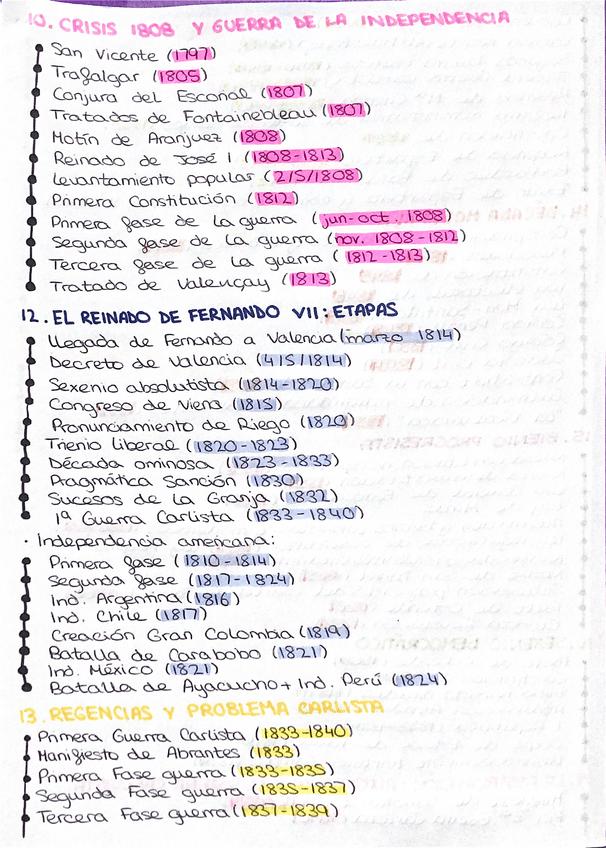 10. CRISIS 1808 Y GUERRA DE LA INDEPENDENCIA
San Vicente (1797)
Trafalgar (1805)
Conjura del Escorial (1807)
Tratados de Fontainebleau (1807)
Motín de Aranjuez (1808)
Reinado de José I (1808-1813)
Levantamiento popular (2/5/1808)
Primera Constitución (1812)
Primera fase de la guerra (jun-oct. 1808)
Segunda fase de la guerra (nov. 1808-1812)
Tercera fase de la guerra (1812-1813)
Tratado de Valençay (1813)
12. EL REINADO DE FERNANDO VII: ETAPAS
Llegada de Fernando a Valencia (marzo 1814)
Decreto de Valencia (4/5/1814)
Sexenio absolutista (1814-1820)
Congreso de Viena (1815)
Pronunciamiento de Riego (1820)
Trienio liberal (1820-1823)
Década ominosa (1823-1833)
Pragmática Sanción (1830)
Sucesos de La Granja (1832)
1ª Guerra Carlista (1833-1840)
· Independencia americana:
Primera fase (1810-1814)
Segunda fase (1817-1824)
Ind. Argentina (1816)
Ind. Chile (1817)
Creación Gran Colombia (1819)
Batalla de Carabobo (1821)
Ind. México (1821)
Batalla de Ayacucho + Ind. Perú (1824)
13. REGENCIAS Y PROBLEMA CARLISTA
Primera Guerra Carlista (1833-1840)
Manifiesto de Abrantes (1833)
Primera Fase guerra (1833-1835)
Segunda Fase guerra (1835-1837)
Tercera Fase guerra (1837-1839)